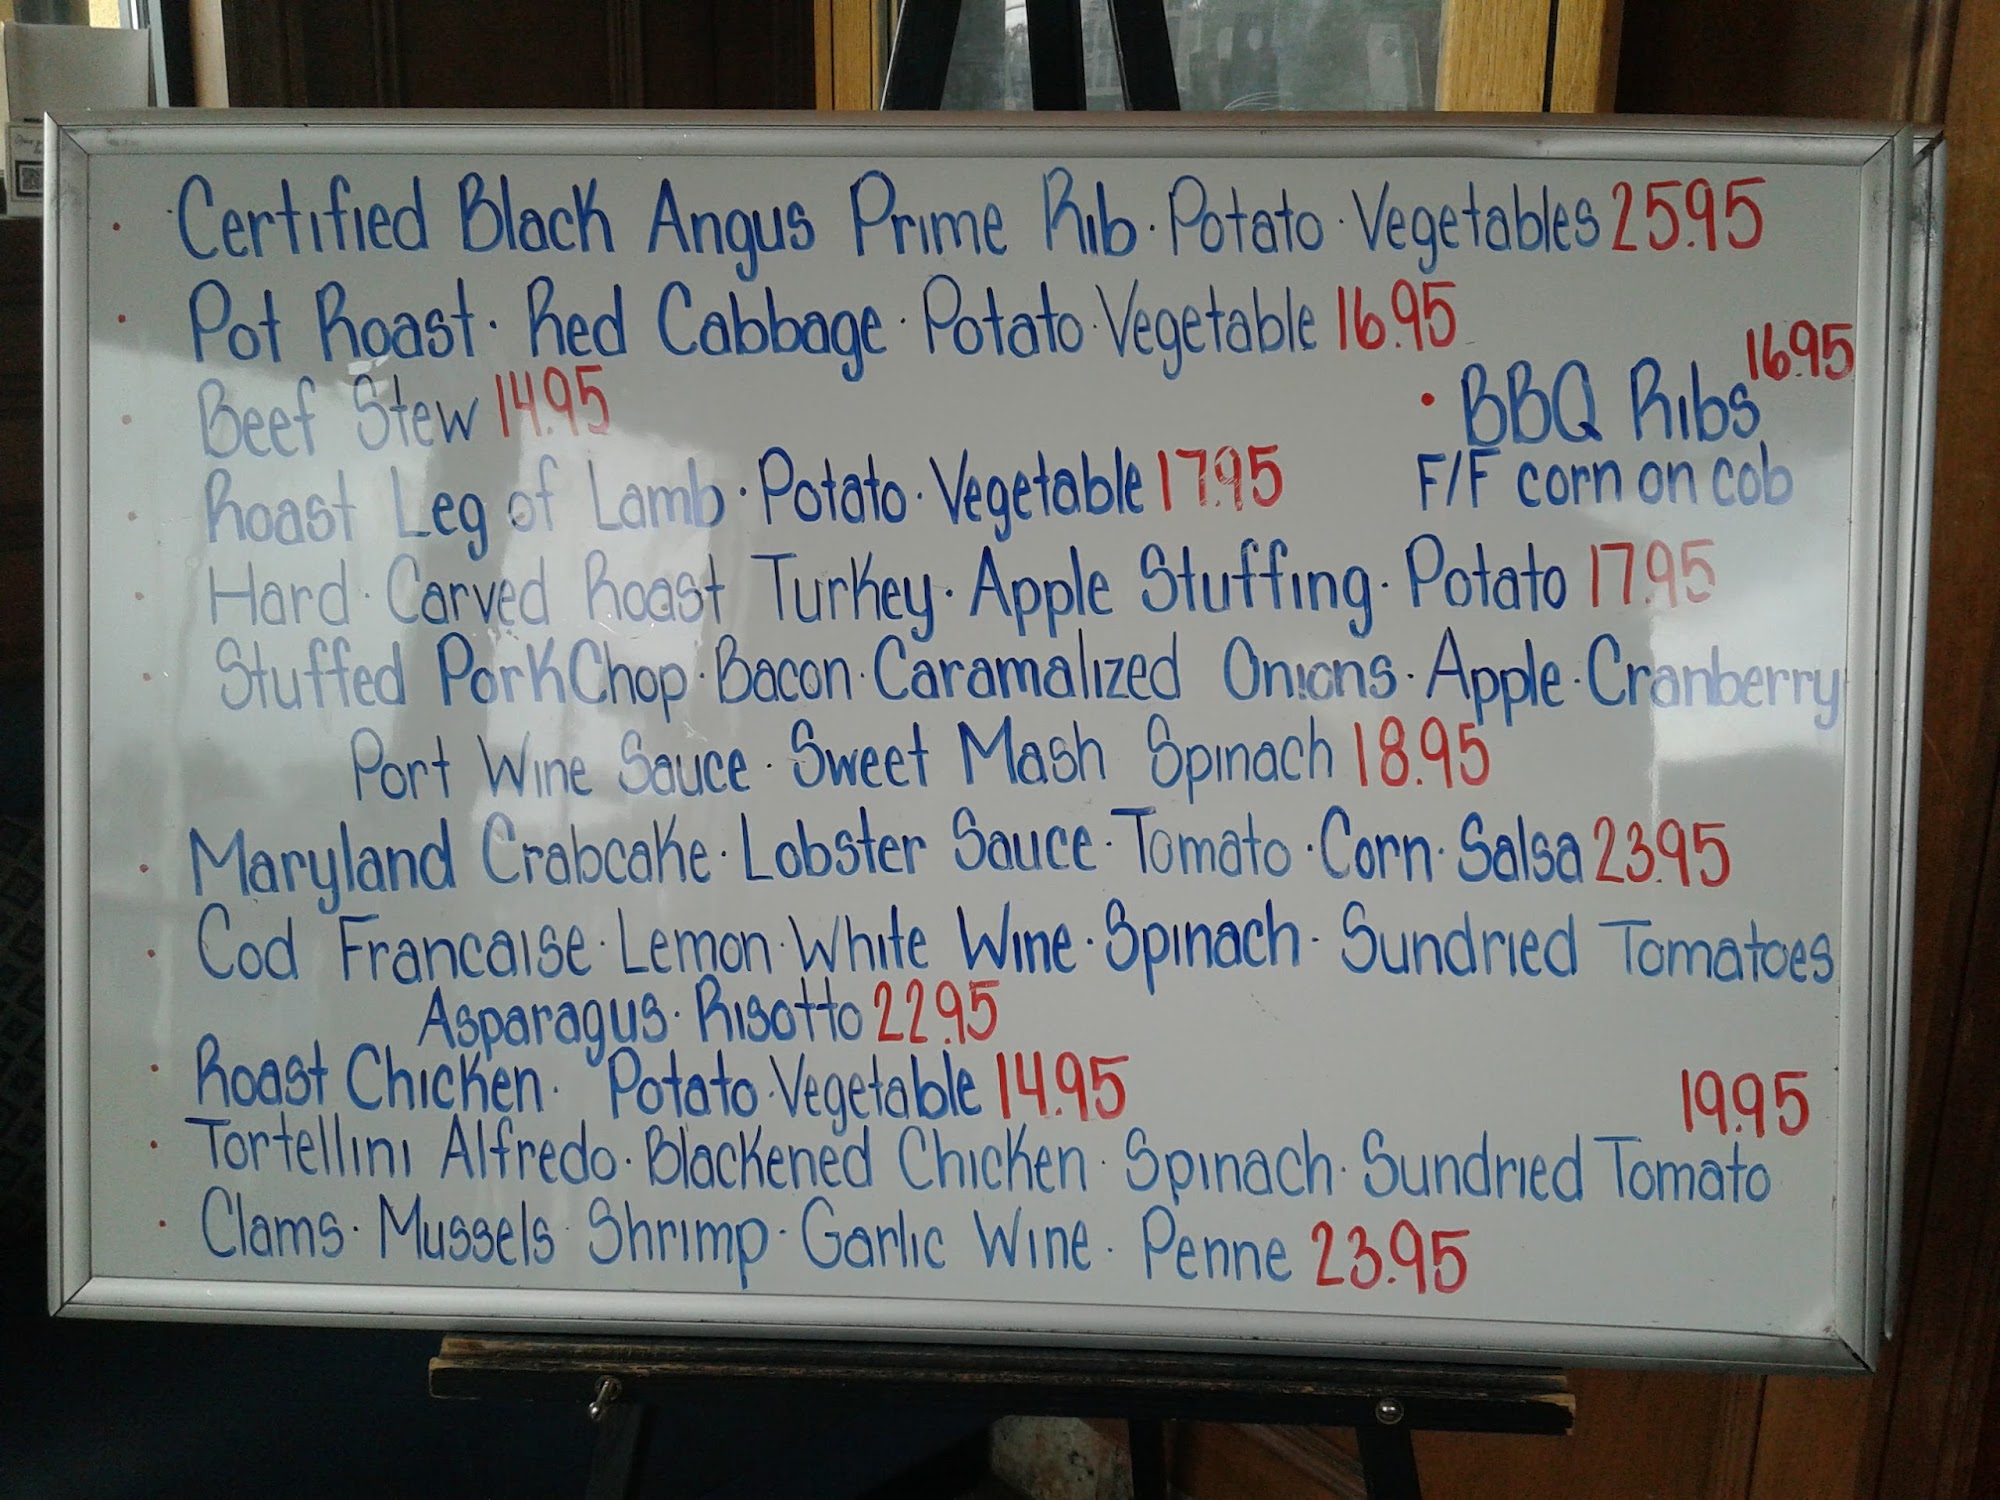 Certified Black Angus Prime Rib · Potato · Vegetables 25.95
Pot Roast · Red Cabbage · Potato · Vegetable 16.95
Beef Stew 14.95
16.95
• BBQ Ribs
F/F corn on cob
Roast Leg of Lamb · Potato · Vegetable 17.95
Hard · Carved Roast Turkey · Apple Stuffing · Potato 17.95
Stuffed Pork Chop · Bacon · Caramalized Onions · Apple · Cranberry
Port Wine Sauce · Sweet Mash Spinach 18.95
Maryland Crabcake · Lobster Sauce · Tomato · Corn · Salsa 23.95
Cod Francaise · Lemon · White Wine · Spinach · Sundried Tomatoes
Asparagus · Risotto 22.95
Roast Chicken · Potato · Vegetable 14.95
19.95
Tortellini Alfredo · Blackened Chicken · Spinach · Sundried Tomato
Clams · Mussels · Shrimp · Garlic Wine · Penne 23.95